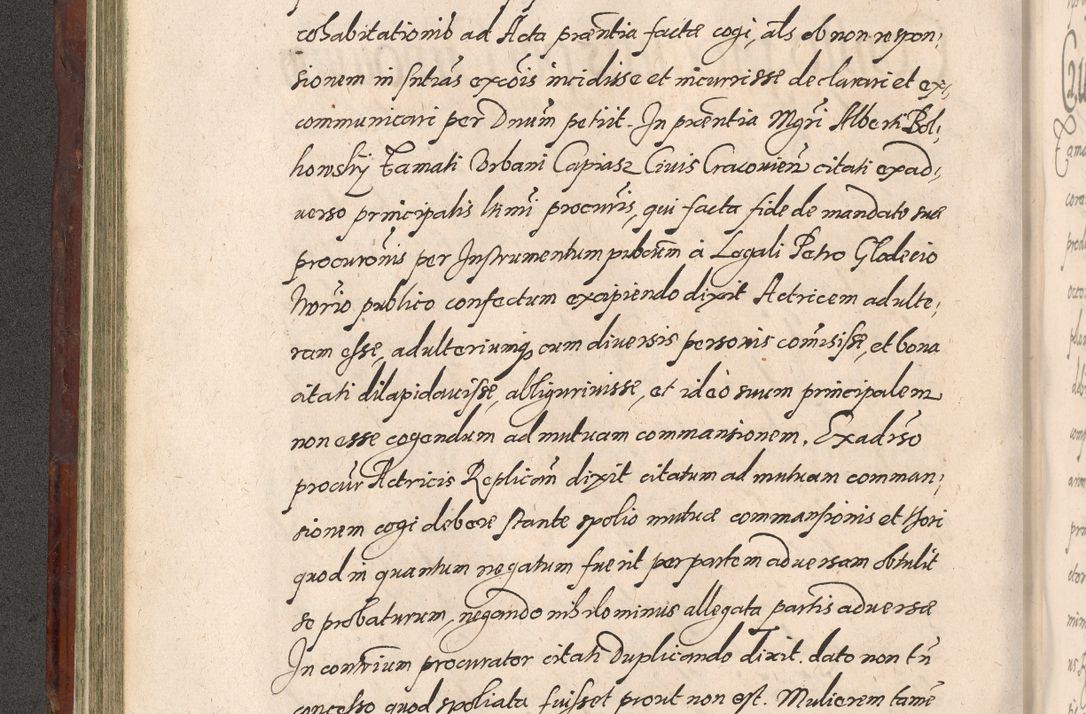 cohabitationib ad Acta præntia factæ cogi, als ob non respon,
sionem in sntias excõis incidisse et incurrisse declarari et ex,
communicari per Dnum petiit. In præntia Mgri Alberti Bol,
howsky famati Urbani Capiasz Civis Cracovien citati ex ad,
verso principalis procuris, qui facta fide de mandato suæ
procuronis per Instrumentum pubcum à Legali Petro Glodecio
Norio publico confectum excipiendo dixit Actricem adulte,
ram esse, adulteriumq cum diversis personis comisisse, et bona
citati dilapidavisse, abligurivisse, et ideò suum principalem
non esse cogendum ad mutuam commansionem. Ex adrso
procur Actricis Replicam dixit citatum ad mutuam comman,
sionem cogi debere stante spolio mutuæ commansionis et thori
quod in quantum negatum fuerit per partem adversam obtulit
se probaturum, negando nihilominus allegata partis adversæ
In contrium procurator citati Duplicando dixit. dato non tn
concesso quod spoliata fuisset prout non est. Mulierem tame